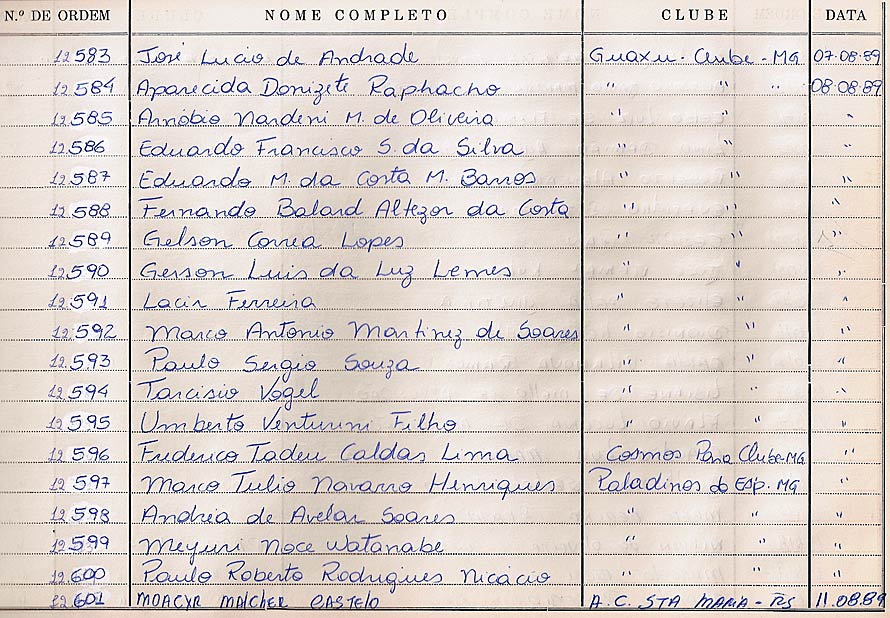 N.º DE ORDEM NOME COMPLETO CLUBE DATA
12583 José Lucio de Andrade Guaxu. Clube - MG 07.08.89
12584 Aparecida Donizete Raphacho " " " 08.08.89
12585 Arnóbio Nardeni M. de Oliveira " " "
12586 Eduardo Francisco S. da Silva " " "
12587 Eduardo M. da Costa M. Barros " " "
12588 Fernando Balard Altezor da Costa " " "
12589 Gelson Correa Lopes " " "
12590 Gerson Luis da Luz Lemes " " "
12591 Lacir Ferreira " " "
12592 Marco Antonio Martinez de Soares " " "
12593 Paulo Sergio Souza " " "
12594 Tarcisio Vogel " " "
12595 Umberto Venturini Filho " " "
12596 Frederico Tadeu Caldas Lima Cosmos Para Clube-MG "
12597 Marco Tulio Navarro Henriques Paladinos do Esp. MG "
12598 Andréa de Avelar Soares " " "
12599 Meyuri Noce Watanabe " " "
12600 Paulo Roberto Rodrigues Nicácio " " "
12601 MOACYR MALCHER CASTELO A.C. STA MARIA - RS 11.08.89